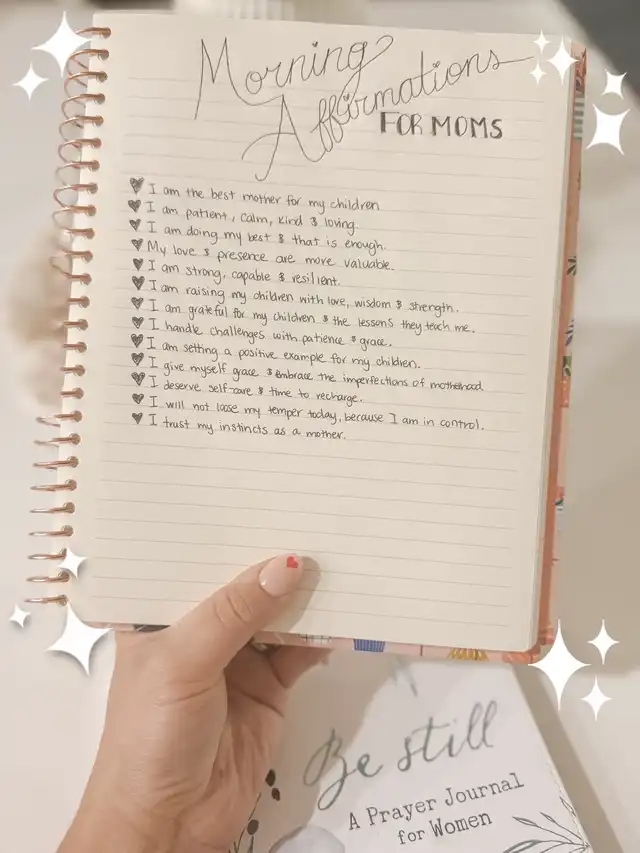 Morning
Affirmations
FOR MOMS
I am the best mother for my children
I am patient, calm, kind & loving.
I am doing my best & that is enough.
My love & presence are more valuable.
I am strong, capable & resilient.
I am raising my children with love, wisdom & strength.
I am grateful for my children & the lessons they teach me.
I handle challenges with patience & grace.
I am setting a positive example for my children.
I give myself grace & embrace the imperfections of motherhood.
I deserve self-care & time to recharge.
I will not loose my temper today, because I am in control.
I trust my instincts as a mother.
Be still
A Prayer Journal
for Women